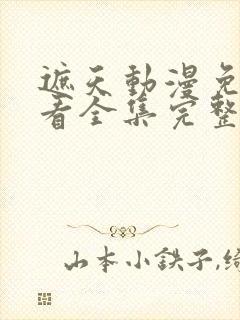 遮天動漫免
看全集完整
山本小鉄子,綺